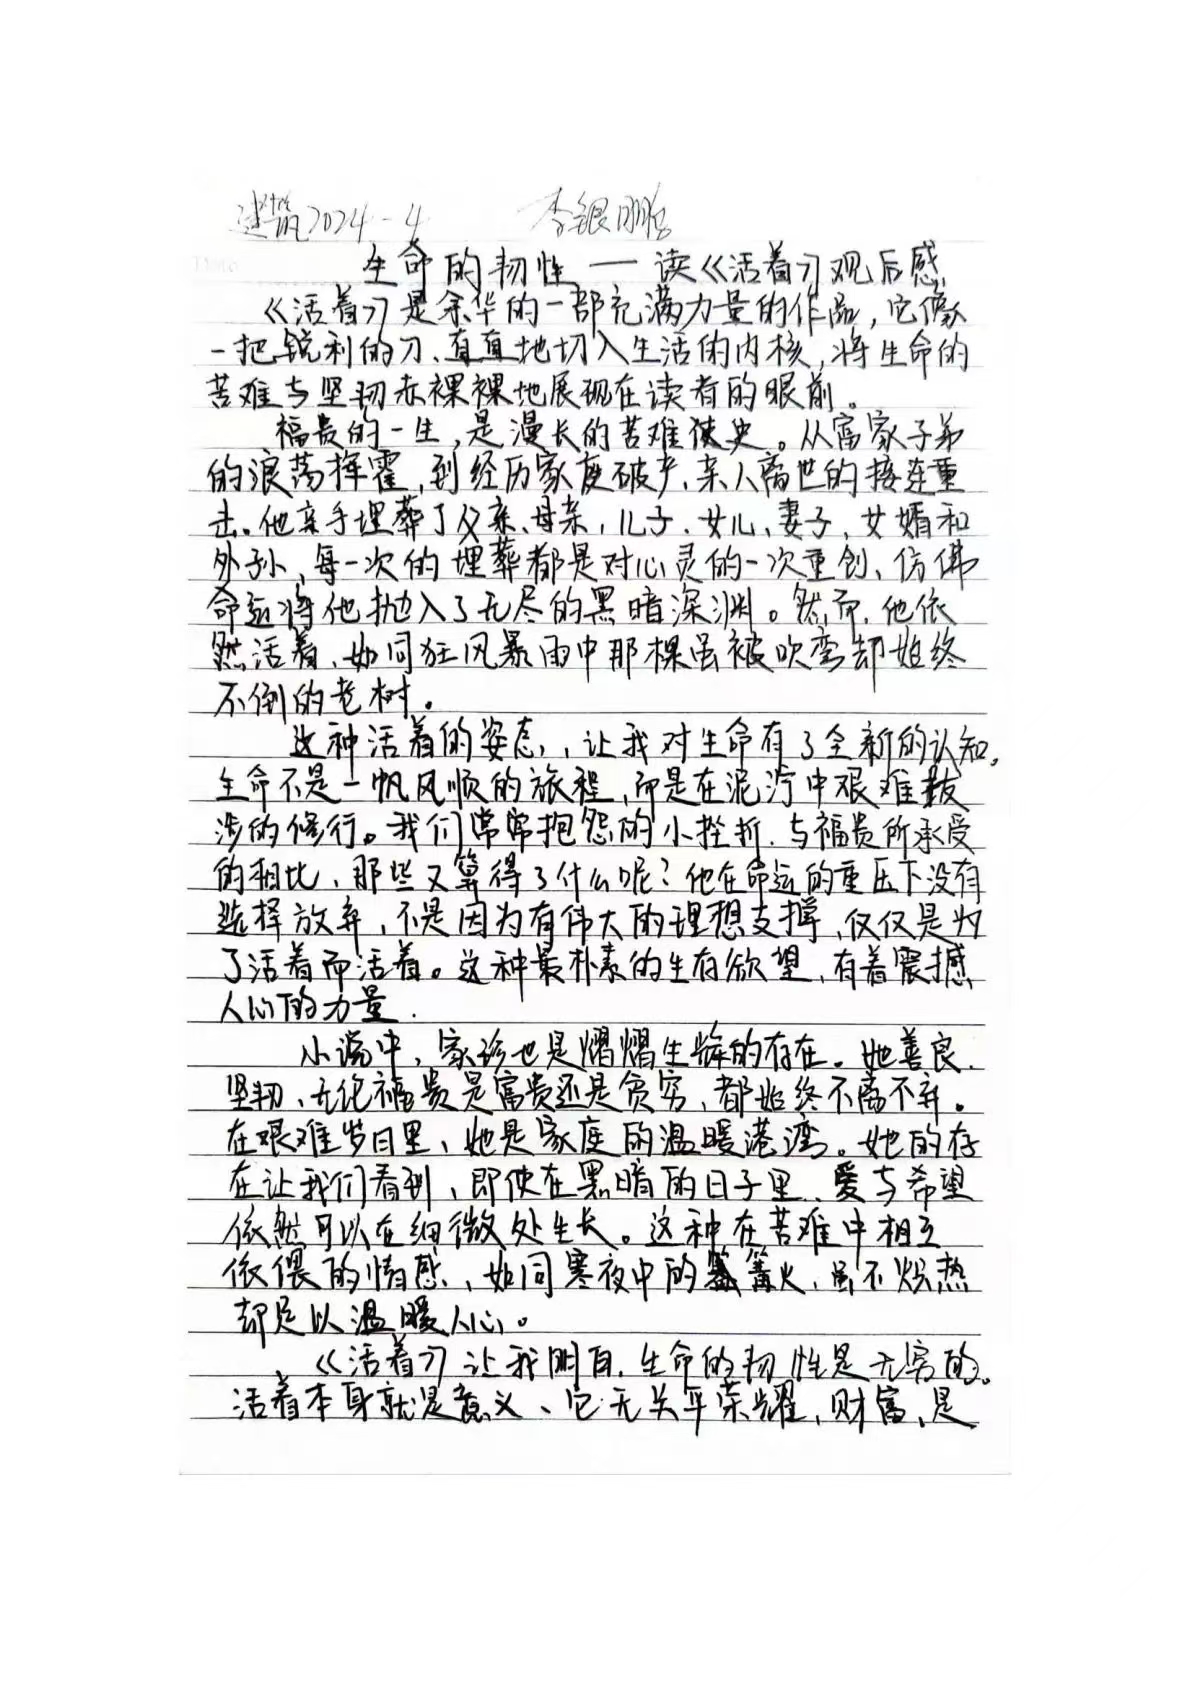 建筑2024-4 李银鹏
生命的韧性——读《活着》观后感
《活着》是余华的一部充满力量的作品,它像
一把锐利的刀、直直地切入生活的内核,将生命的
苦难与坚韧赤裸裸地展现在读者的眼前。
福贵的一生,是漫长的苦难史。从富家子弟
的浪荡挥霍,到经历家庭破产、亲人离世的接连重
击。他亲手埋葬了父亲、母亲,儿子、女儿、妻子,女婿和
外孙,每一次的埋葬都是对心灵的一次重创、仿佛
命运将他抛入了无尽的黑暗深渊。然而,他依
然活着、如同狂风暴雨中那棵虽被吹弯却始终
不倒的老树。
这种活着的姿态,让我对生命有了全新的认知。
生命不是一帆风顺的旅程,而是在泥泞中艰难跋
涉的修行。我们常常抱怨的小挫折,与福贵所承受
的相比、那些又算得了什么呢?他在命运的重压下没有
选择放弃,不是因为有伟大的理想支撑、仅仅是为
了活着而活着。这种最朴素的生存欲望,有着震撼
人心的力量.
小说中,家珍也是熠熠生辉的存在。她善良、
坚韧、无论福贵是富贵还是贫穷,都始终不离不弃。
在艰难岁月里、她是家庭的温暖港湾。她的存
在让我们看到,即使在黑暗的日子里、爱与希望
依然可以在细微处生长。这种在苦难中相互
依偎的情感,如同寒夜中的篝火,虽不炽热
却足以温暖人心。
《活着》让我明白,生命的韧性是无穷的。
活着本身就是意义、它无关乎荣耀,财富,是